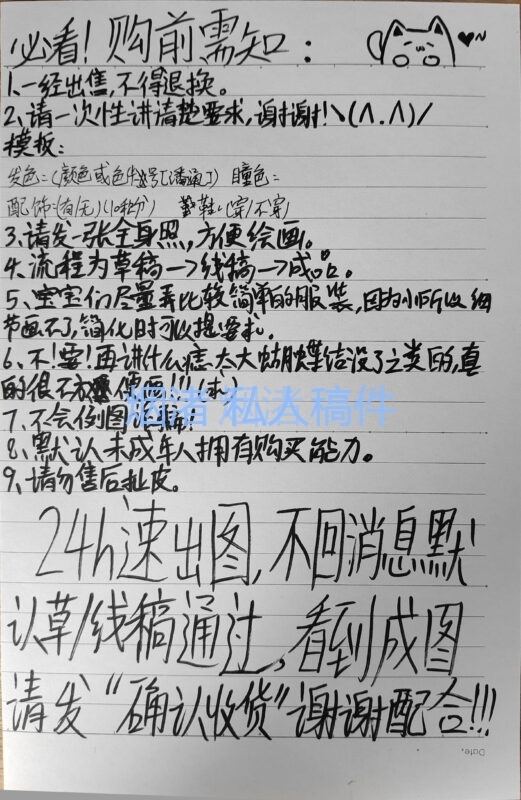 必看！购前需知：
1、一经出售，不得退换。
2、请一次性讲清楚要求，谢谢！\(∧.∧)/
模板：
发色=(颜色或色卡 号[潘通]) 瞳色=
配饰=(有/无)( 部分) 鞋=(穿/不穿)
3、请发一张全身照，方便绘画。
4、流程为草稿→线稿→成品。
5、宝宝们尽量弄比较简单的服装，因为 所以细
节画不了，简化时可以提要求。
6、不！要！再讲什么痣太大蝴蝶结没了之类的，真
的很不方便 画！！！
7、不会倒图
8、默认未成年人拥有购买能力。
9、请勿售后扯皮。
24h速出图，不回消息默
认草/线稿通过，看到成图
请发“确认收货”谢谢配合！！！
烟渚 私人稿件
Date.